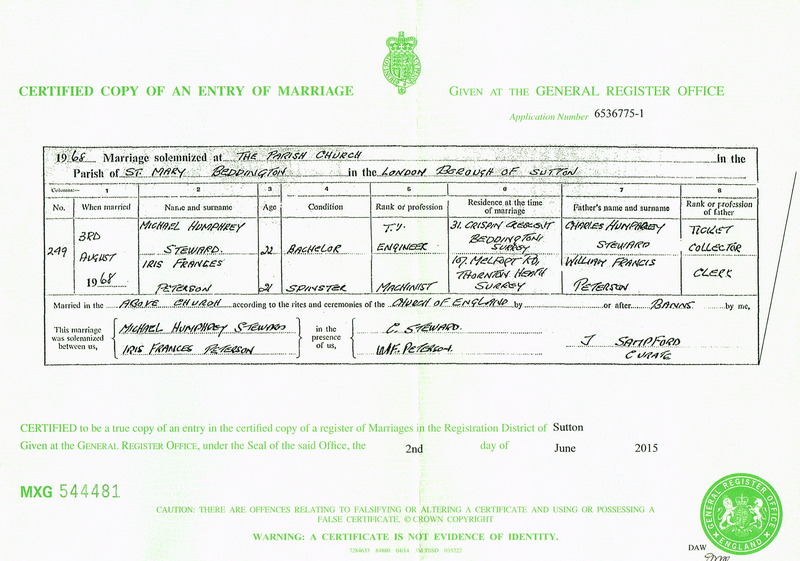 CERTIFIED COPY OF AN ENTRY OF MARRIAGE
GIVEN AT THE GENERAL REGISTER OFFICE
Application Number 6536775-1
1968 Marriage solemnized at THE PARISH CHURCH in the
Parish of ST. MARY BEDDINGTON in the LONDON BOROUGH OF SUTTON
Columns:— 1 2 3 4 5 6 7 8
No. When married Name and surname Age Condition Rank or profession Residence at the time of marriage Father's name and surname Rank or profession of father
249 3RD AUGUST 1968
MICHAEL HUMPHREY STEWARD 22 BACHELOR T.V. ENGINEER 31. CRISPIN CRESCENT BEDDINGTON SURREY CHARLES HUMPHREY STEWARD TICKET COLLECTOR
IRIS FRANCES PETERSON 21 SPINSTER MACHINIST 107. MELFORT RD, THORNTON HEATH SURREY WILLIAM FRANCIS PETERSON CLERK
Married in the ABOVE CHURCH according to the rites and ceremonies of the CHURCH OF ENGLAND by or after BANNS by me,
This marriage was solemnized between us,
MICHAEL HUMPHREY STEWARD
IRIS FRANCES PETERSON
in the presence of us,
C. STEWARD.
W.F. PETERSON.
J SAMPFORD
CURATE
CERTIFIED to be a true copy of an entry in the certified copy of a register of Marriages in the Registration District of Sutton
Given at the GENERAL REGISTER OFFICE, under the Seal of the said Office, the 2nd day of June 2015
MXG 544481
CAUTION: THERE ARE OFFENCES RELATING TO FALSIFYING OR ALTERING A CERTIFICATE AND USING OR POSSESSING A
FALSE CERTIFICATE. © CROWN COPYRIGHT
WARNING: A CERTIFICATE IS NOT EVIDENCE OF IDENTITY.
GENERAL REGISTER OFFICE
ENGLAND
DAW